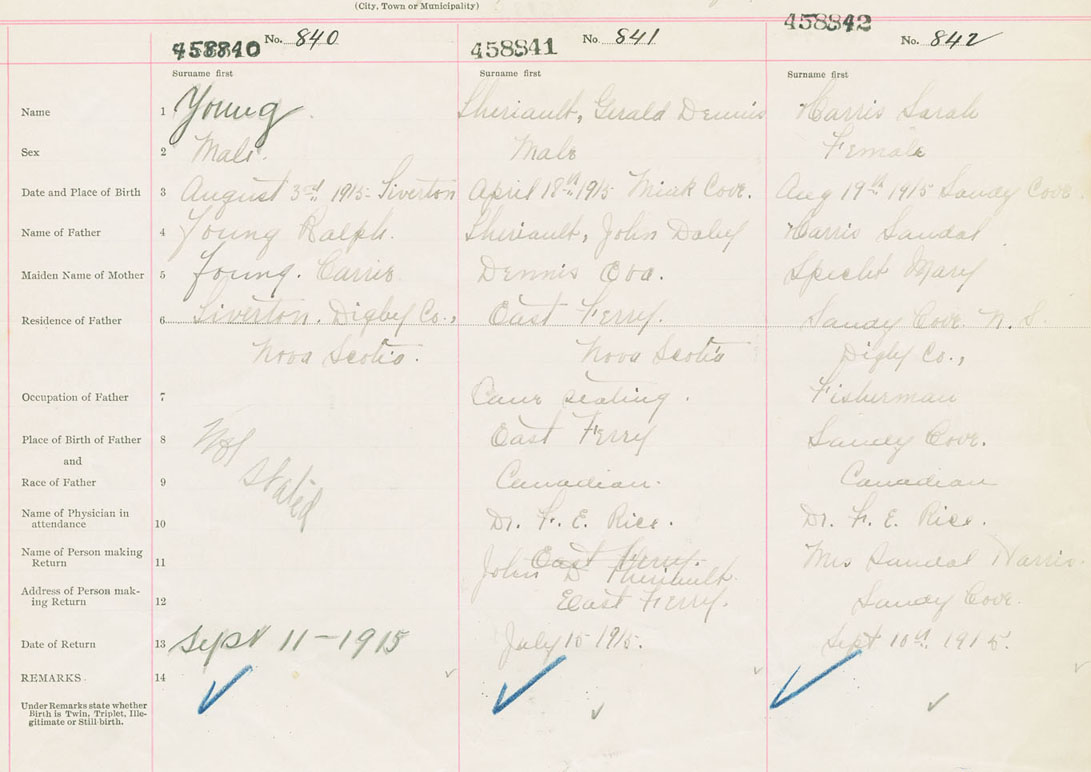 (City, Town or Municipality)
458840 No. 840 458841 No. 841 458842 No. 842
Surname first Surname first Surname first
Name 1 Young Theriault, Gerald Dennis Harris Sarah
Sex 2 Male. Male Female
Date and Place of Birth 3 August 3rd 1915- Tiverton April 18th 1915 Mink Cove. Aug 19th 1915 Sandy Cove
Name of Father 4 Young Ralph. Theriault, John Daley Harris Sandal
Maiden Name of Mother 5 Young. Carrie Dennis Eva. Specht Mary
Residence of Father 6 Tiverton. Digby Co., East Ferry. Sandy Cove. N. S.
Nova Scotia. Nova Scotia Digby Co.,
Occupation of Father 7 seating. Fisherman
Place of Birth of Father 8 Not stated East Ferry Sandy Cove.
and
Race of Father 9 Canadian. Canadian
Name of Physician in
attendance 10 Dr. F. E. Rice. Dr. F. E. Rice.
Name of Person making
Return 11 East Ferry. John D Theriault. Mrs Sandal Harris.
Address of Person mak-
ing Return 12 East Ferry. Sandy Cove.
Date of Return 13 Sept 11-1915 July 15 1915. Sept 10th. 1915.
REMARKS 14
Under Remarks state whether
Birth is Twin, Triplet, Ille-
gitimate or Still-birth.